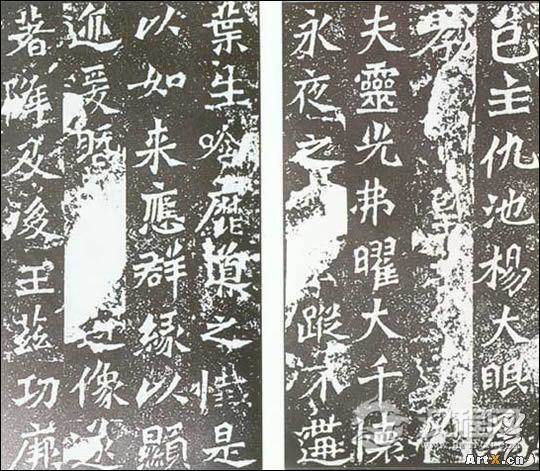 邑主仇池楊大眼
夫靈光弗曜大千懷
永夜之蹤不遘
葉生唅靡導之懺是
以如来應群緣以顯
迹爰暨像遂
著降及後王茲功厥
ArtX.cn